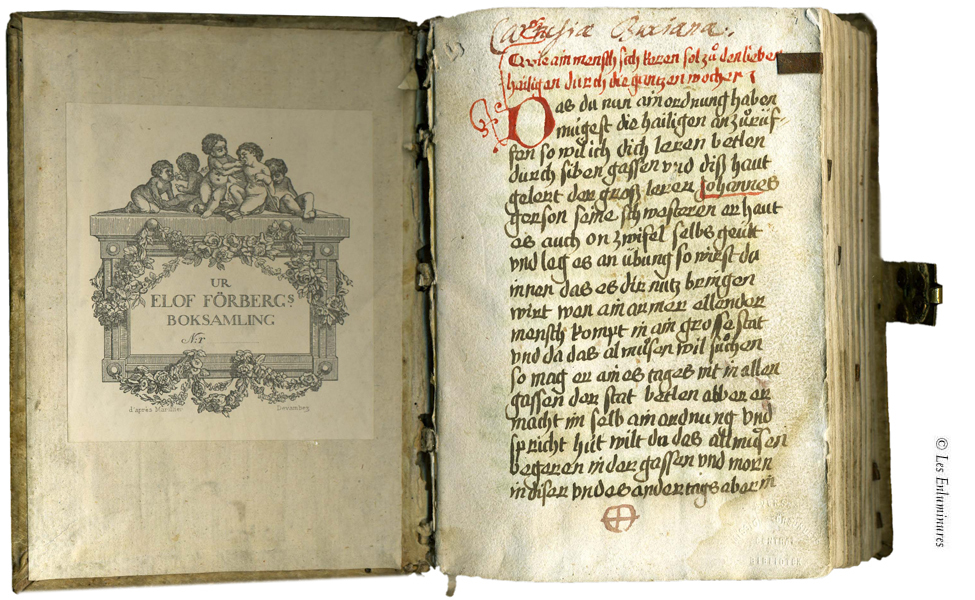 UR
ELOF FÖRBERGS
BOKSAMLING
Nr
d'après Marillier
Cartusia Buxiana.
Wie ain mensch sich keren sol zů den lieben
hailigen durch die gantzen wochen
Das du nun ain ordnung haben
mügest die hailigen an zů rüf-
fen so wil ich dich leren betlen
durch siben gassen vnd diß haut
gelert der groß lerer Johannes
gerson seine schwesteren er haut
es auch on zwifel selbs geübt
vnd leg es an übung so wirst du
innen das es dir nutz bringen
wirt wen ain armer ellender
mensch kompt in ain grosse stat
vnd da das almůsen wil sůchen
so mag er aines tages nit in allen
gassen der stat betlen aber er
macht im selb ain ordnung vnd
spricht hüt wilt du das almůsen
begeren in der gassen vnd morn
in diser vnd es ander tags aber in
ZENTRAL
BIBLIOTEK
© Les Enluminures